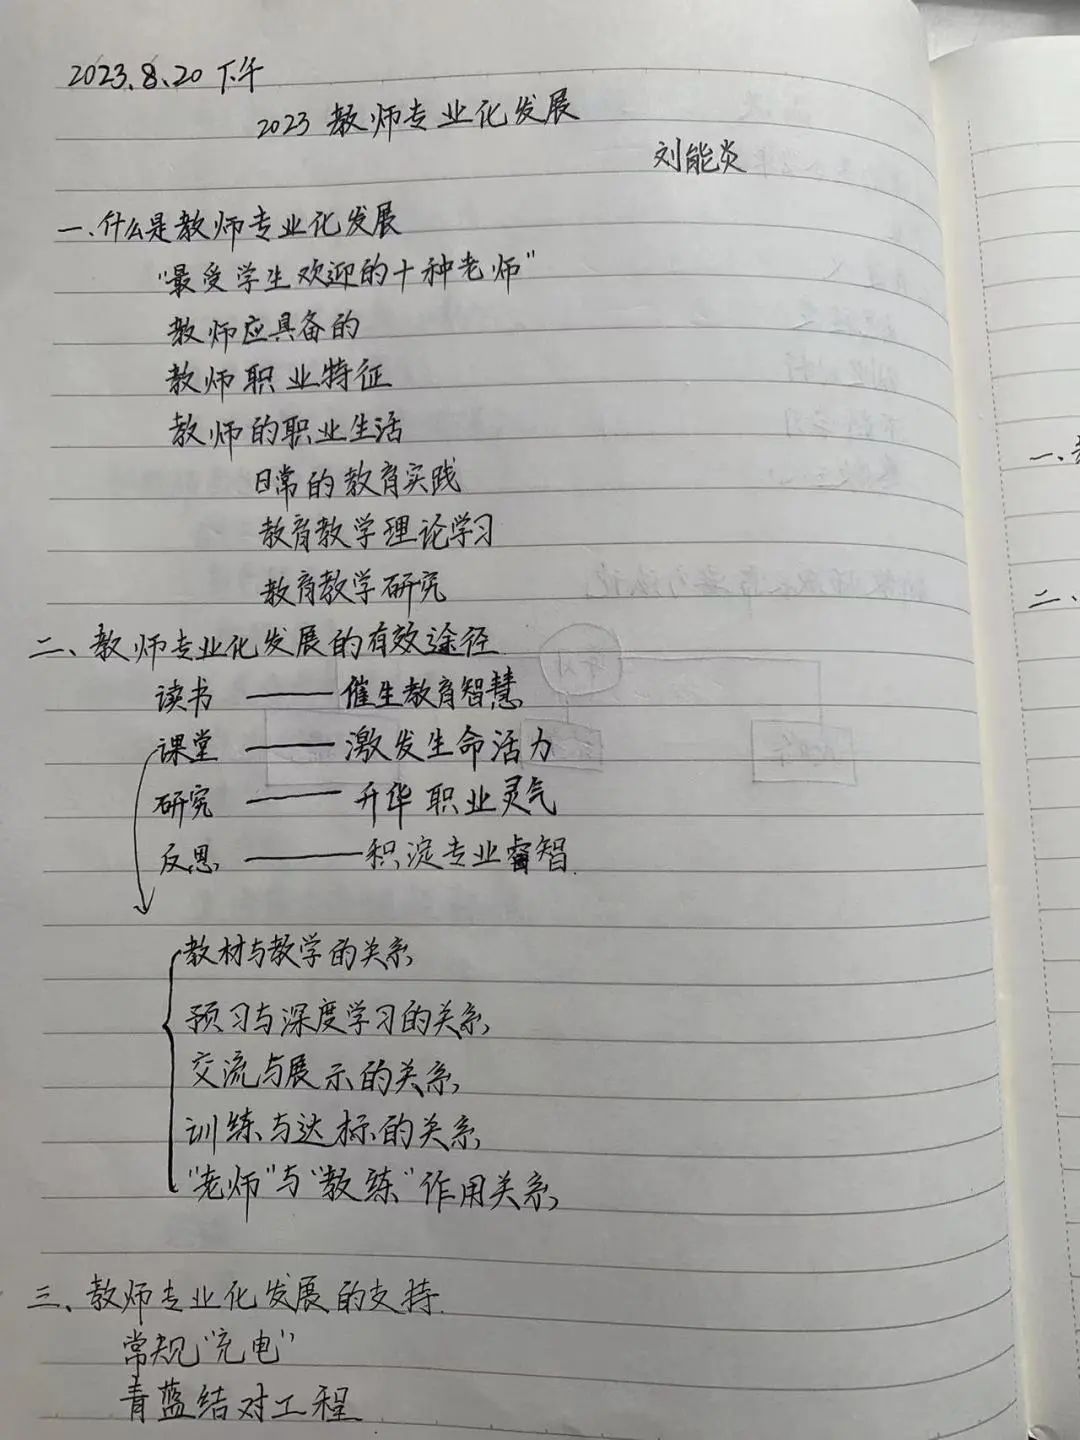 2023.8.20 下午
2023 教师专业化发展
刘能炎
一、什么是教师专业化发展
“最受学生欢迎的十种老师”
教师应具备的
教师职业特征
教师的职业生活
日常的教育实践
教育教学理论学习
教育教学研究
二、教师专业化发展的有效途径
读书 —— 催生教育智慧
课堂 —— 激发生命活力
研究 —— 升华职业灵气
反思 —— 积淀专业睿智
教材与教学的关系
预习与深度学习的关系
交流与展示的关系
训练与达标的关系
“老师”与“教练”作用关系
三、教师专业化发展的支持
常规“充电”
青蓝结对工程
一、
二、